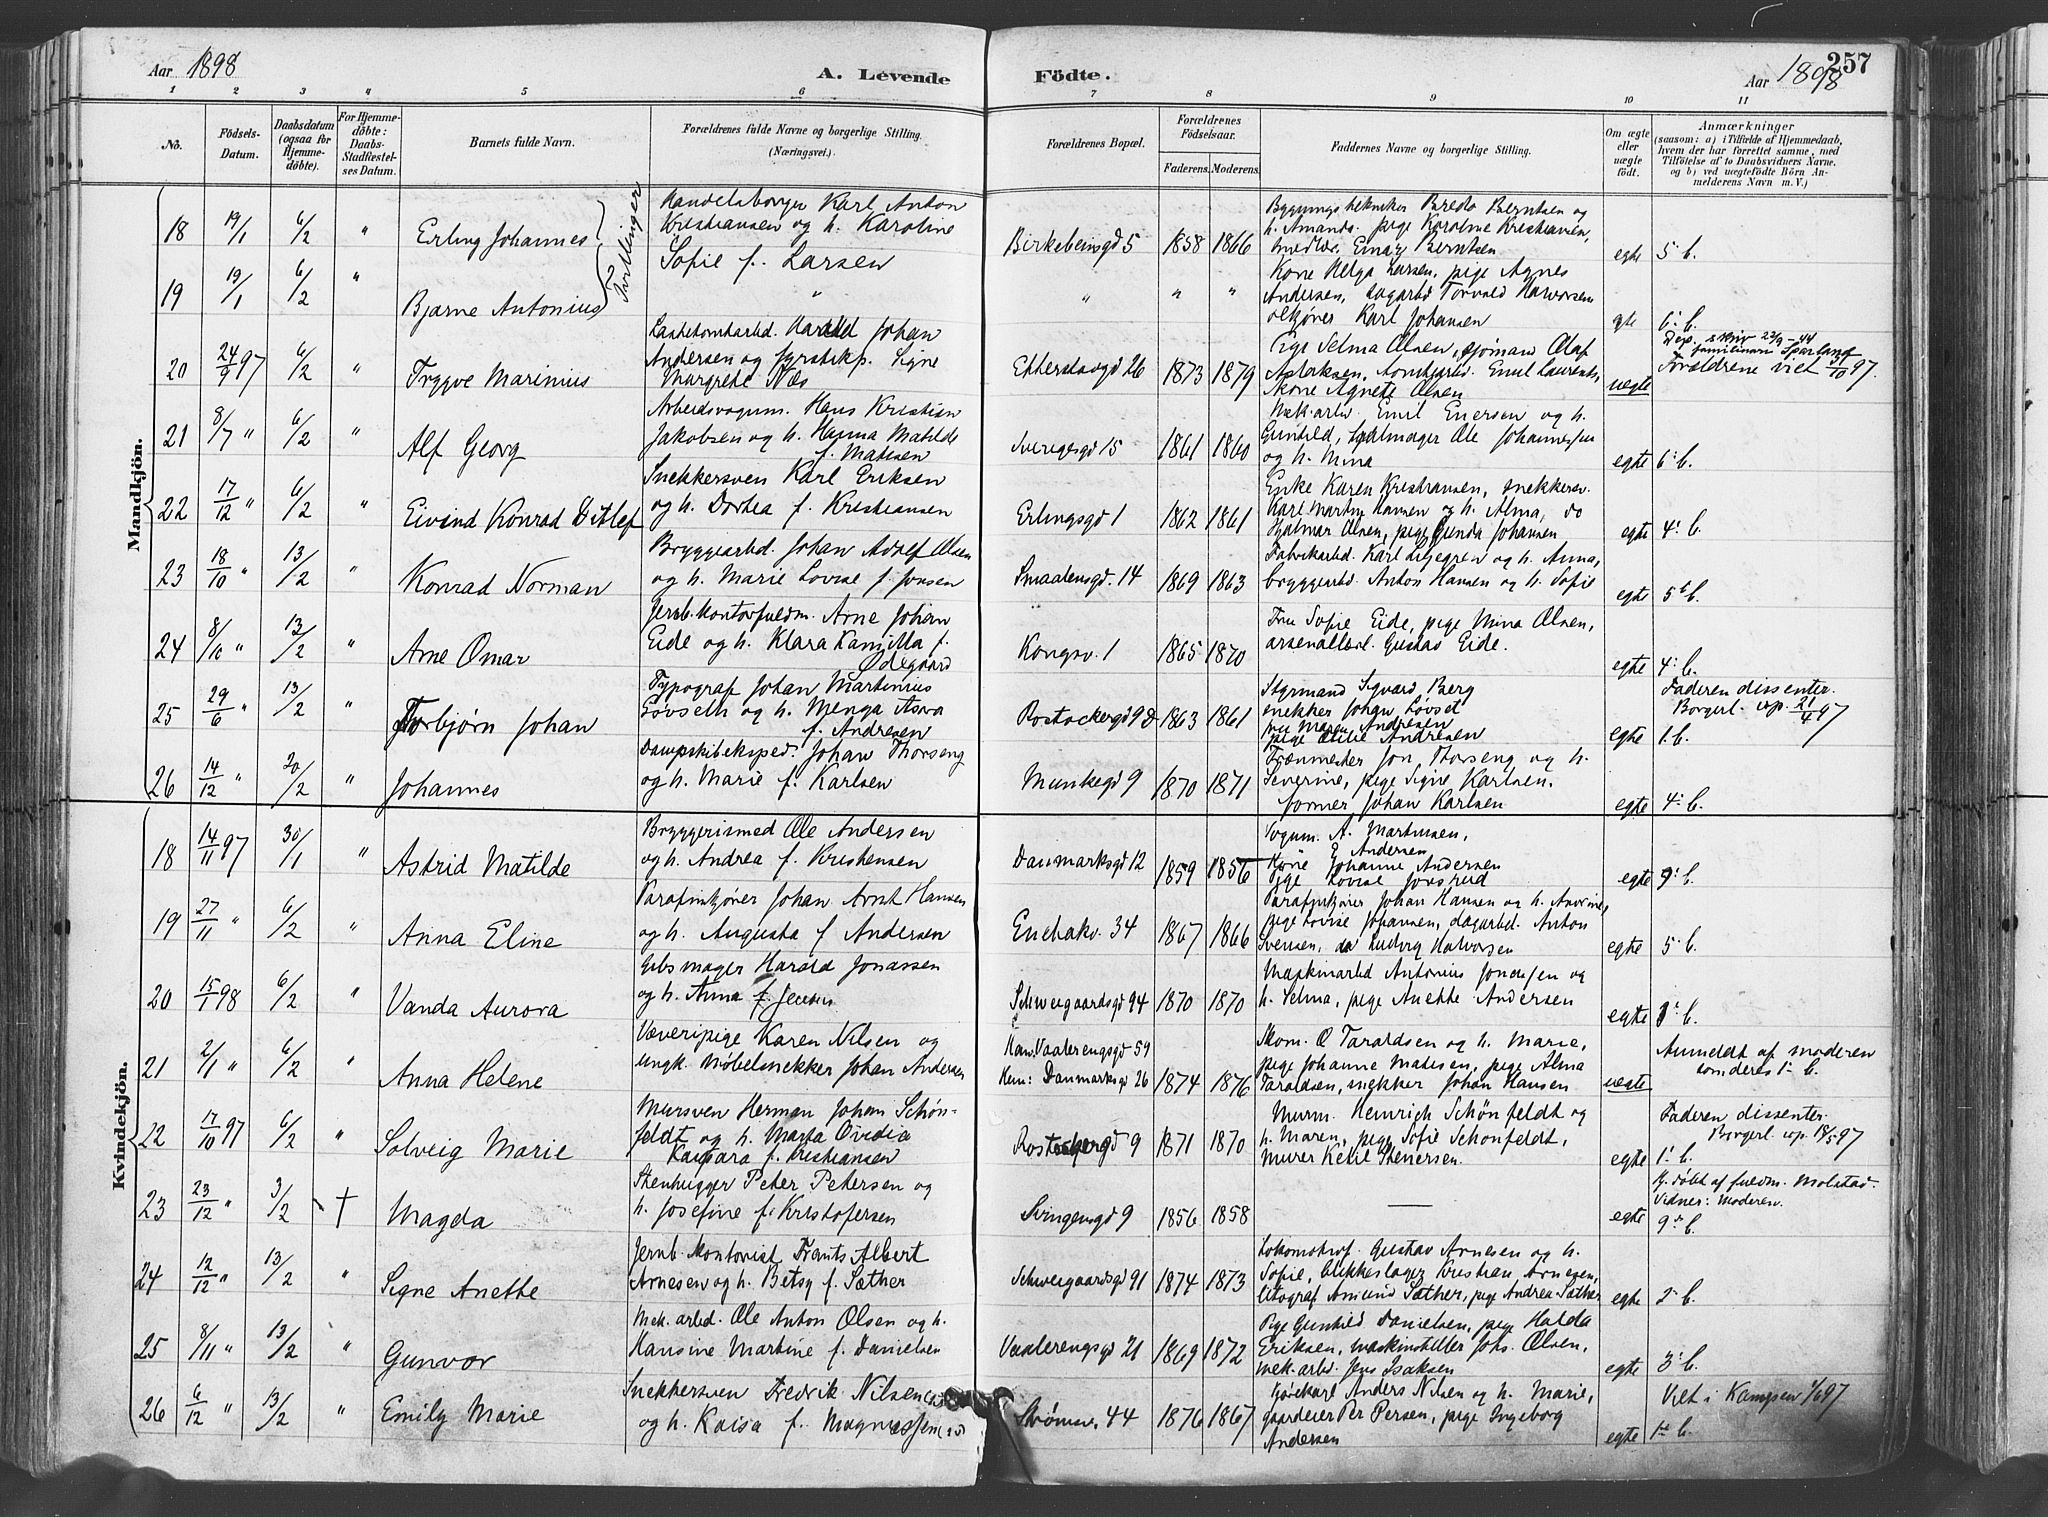 Aar 1898
A. Levende
Födte.
Aar 1898
257
1 2 3 4 5 6 7 8 9 10 11
No.
Födsels-
Datum.
Daabsdatum
(ogsaa for
Hjemme-
döbte).
For Hjemme-
döbte:
Daabs-
Stadfæstel-
ses Datum.
Barnets fulde Navn.
Forældrenes fulde Navne og borgerlige Stilling.
(Næringsvei.)
Forældrenes Bopæl.
Forældrenes
Födselsaar.
Faderens. Moderens.
Faddernes Navne og borgerlige Stilling.
Om ægte
eller
uægte
født.
Anmærkninger
(saasom: a) i Tilfælde af Hjemmedaab,
hvem der har forrettet samme, med
Tilföielse af to Daabsvidners Navne,
og b) ved uægtefödte Börn An-
melderens Navn m. V.)
Mandkjön.
18 19/1 6/2 " Erling Johannes
Tvillinger
Handelsborger Karl Anton
Kristiansen og h. Karoline
Sofie f. Larsen
Birkebeinsgd 5 1858 1866
Bygningstekniker Bredo Berntsen og
h. Amanda, pige Karoline Kristiansen,
Berntsen
egte 5 b.
19 19/1 6/2 " Bjarne Antonius
" " " "
Kone Helga Larsen, pige Agnes
Andersen, dagarbd Torvald Halvorsen
ølkjører Karl Johansen
egte 6. b.
20 24/9 97 6/2 " Trygve Marinius
Harald Johan
Andersen og Signe
Margrethe Næs
Etterstadgd 26 1873 1879
Pige Selma Olsen, sjømand Olaf
Aslaksen, Emil Laurents,
Kone Agnete Olsen
uegte
Sparland
Forældrene viet 3/10 97.
21 8/7 " 6/2 " Alf Georg
Arbeidsvogm. Hans Kristian
Jakobsen og h. Hanna Matilde
f. Madsen
Sverresgd 15 1861 1860
Mek. arb. Emil Enersen og h.
Gunhild, Ole Johannesen
og h. Mina
egte 6. b.
22 17/12 " 6/2 " Eivind Konrad Ditlef
Snekkersven Karl Eriksen
og h. Dortea f. Kristiansen
Erlingsgd 1 1862 1861
Enke Karen Kristiansen, snekkersv.
Karl Martin Hansen og h. Alma, do
Hjalmar Olsen, pige Gunda Johansen
egte 4. b.
23 18/10 " 13/2 " Konrad Norman
Bryggearbd. Johan Adolf Olsen
og h. Marie Lovise f. Jonsen
Smaalensgd. 14 1869 1863
Fabrikarbd. Karl Liljegren og h. Anna,
bryggearbd Anton Hansen og h. Sofie
egte 5 b.
24 8/10 " 13/2 " Arne Omar
Jernb. kontorfuldm. Arne Johan
Eide og h. Klara Kamilla f.
Ødegaard
Kongsv. 1 1865 1870
Fru Sofie Eide, pige Mina Olsen,
arsenalarb. Gustav Eide.
egte 4. b.
25 29/6 " 13/2 " Torbjørn Johan
Typograf Johan Martinius
Løvseth og h. Menga Asora
f. Andresen
Rostockergd 9 d 1863 1861
Styrmand Sigvard Berg
snekker Johan Løvset
fru Maren Andresen
pige Andresen
egte 1. b.
Faderen dissenter.
Borgerl. vp. 21/4 97
26 14/12 " 20/2 " Johannes
Dampskibsksped. Johan Thorseng
og h. Marie f. Karlsen
Munkegd 9 1870 1871
Jon Thorseng og h.
Severine, pige Signe Karlsen,
former Johan Karlsen
egte 4. b.
Kvindekjön.
18 14/11 97 30/1 " Astrid Matilde
Bryggerismed Ole Andersen
og h. Andrea f. Kristensen
Danmarksgd 12 1859 1856
Vogum. A. Martinsen,
E Andersen
Kone Johanne Andersen
Pige Lovise Jonsrud
egte 9. b.
19 27/11 " 6/2 " Anna Eline
Parafinkjører Johan Arnt Hansen
og h. Augusta f. Andersen
Enebakv. 34 1867 1866
Parafinkjører Johan Hansen og h. Anrine,
pige Lovise Johansen, dagarbd. Anton
Svensen, do Ludvig Halvorsen
egte 5. b.
20 15/1 98 6/2 " Vanda Aurora
Gibsmager Harald Jonassen
og h. Anna f. Jensen
Schweigaardsgd 94 1870 1870
Maskinarbd Antonius Jondesen og
h. Selma, pige Anette Andersen
egte 1. b.
21 2/1 " 6/2 " Anna Helene
Væveripige Karen Nilsen og
ungk. møbelsnekker Johan Andersen
Han: Vaalerengsgd 59
Hun: Danmarksgd 26 1874 1876
Skom. O Taraldsen og h. Marie,
pige Johanne Madsen, pige Alma
Taraldsen, snekker Johan Hansen
uegte
Anmeldt af moderen
som deres 1. b.
22 17/10 97 6/2 " Solveig Marie
Mursven Herman Johan Schön-
feldt og h. Marta Ovidia
Kaspara f. Kristiansen
Rostockergd 9 1871 1870
Murm. Heinrich Schönfeldt og
h. Maren, pige Sofie Schönfeldt,
murer Ketil Stenersen.
egte 1. b.
Faderen dissenter.
Borgerl. vp. 18/5 97
23 23/12 " 3/2 † Magda
Stenhugger Peter Petersen og
h. Josefine f. Kristofersen
Svingensgd 9 1856 1858
—
egte
H. døbt af fuldm. Molstad.
Vidner: Moderen.
9. b.
24 12/12 " 13/2 " Signe Anette
Jernb. kontorist Frants Albert
Arnesen og h. Betsy f. Sæther
Schweigaardsgd 91 1874 1873
Lokomotivf. Gustav Arnesen og h.
Sofie, blikkeslager Kristian Arnesen,
litograf Amund Sæther, pige Andrea Sæther
egte 2. b.
25 8/11 " 13/2 " Gunvor
Mek. arbd. Ole Anton Olsen og h.
Hansine Martine f. Danielsen
Vaalerengsgd 21 1869 1872
Pige Gunhild Danielsen, pige Halda
Eriksen, maskinstiller Johs. Olsen,
mek. arbd. Jens Isaksen
egte 3. b.
26 6/12 " 13/2 " Emily Marie
Snekkersven Fredrik Nilsen
og h. Kaisa f. Magnussen
Strømsv. 44 1876 1867
Kjørekarl Anders Nilsen og h. Marie,
gaardeier Per Persen, pige Ingeborg
Andersen
egte 1. b.
Viet i Kampen 1/6 97